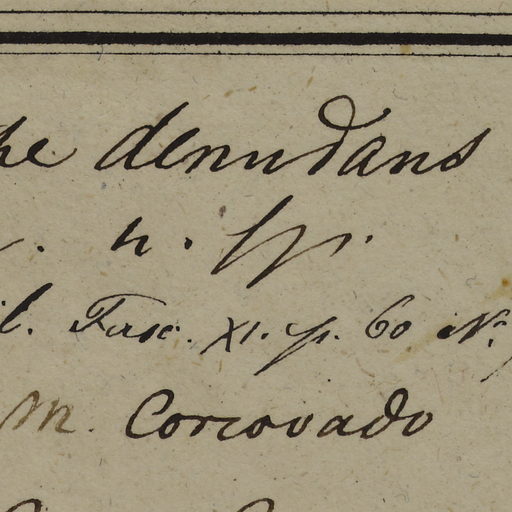 he denudans
. n. sp.
il. Fasc. XI. p. 60 No.
M. Corcovado